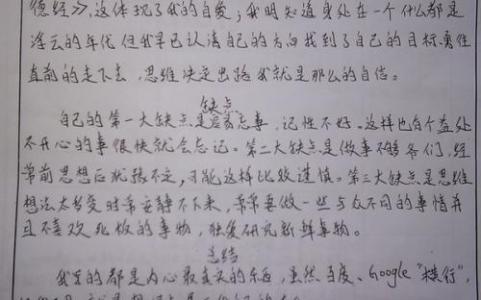 德经》,这体现了我的自爱;我明知道身处在一个什么都是
浮云的年代,但我早已认清自己的方向找到了自己的目标,勇往
直前的走下去,思维决定出路我就是那么的自信。
缺点
自己的第一大缺点是容易忘事,记性不好。这样也有个益处
不开心的事很快就会忘记。第二大缺点是做事不够爷们,经
常前思想后犹豫不定,可能这样比较谨慎。第三大缺点是思维
想法太多变时常安静不下来,常常要做一些与众不同的事情并
且不喜欢死板的事物,独爱研究新鲜事物。
总结
我写的都是内心最真实的东西,虽然百度、Google“横行”,